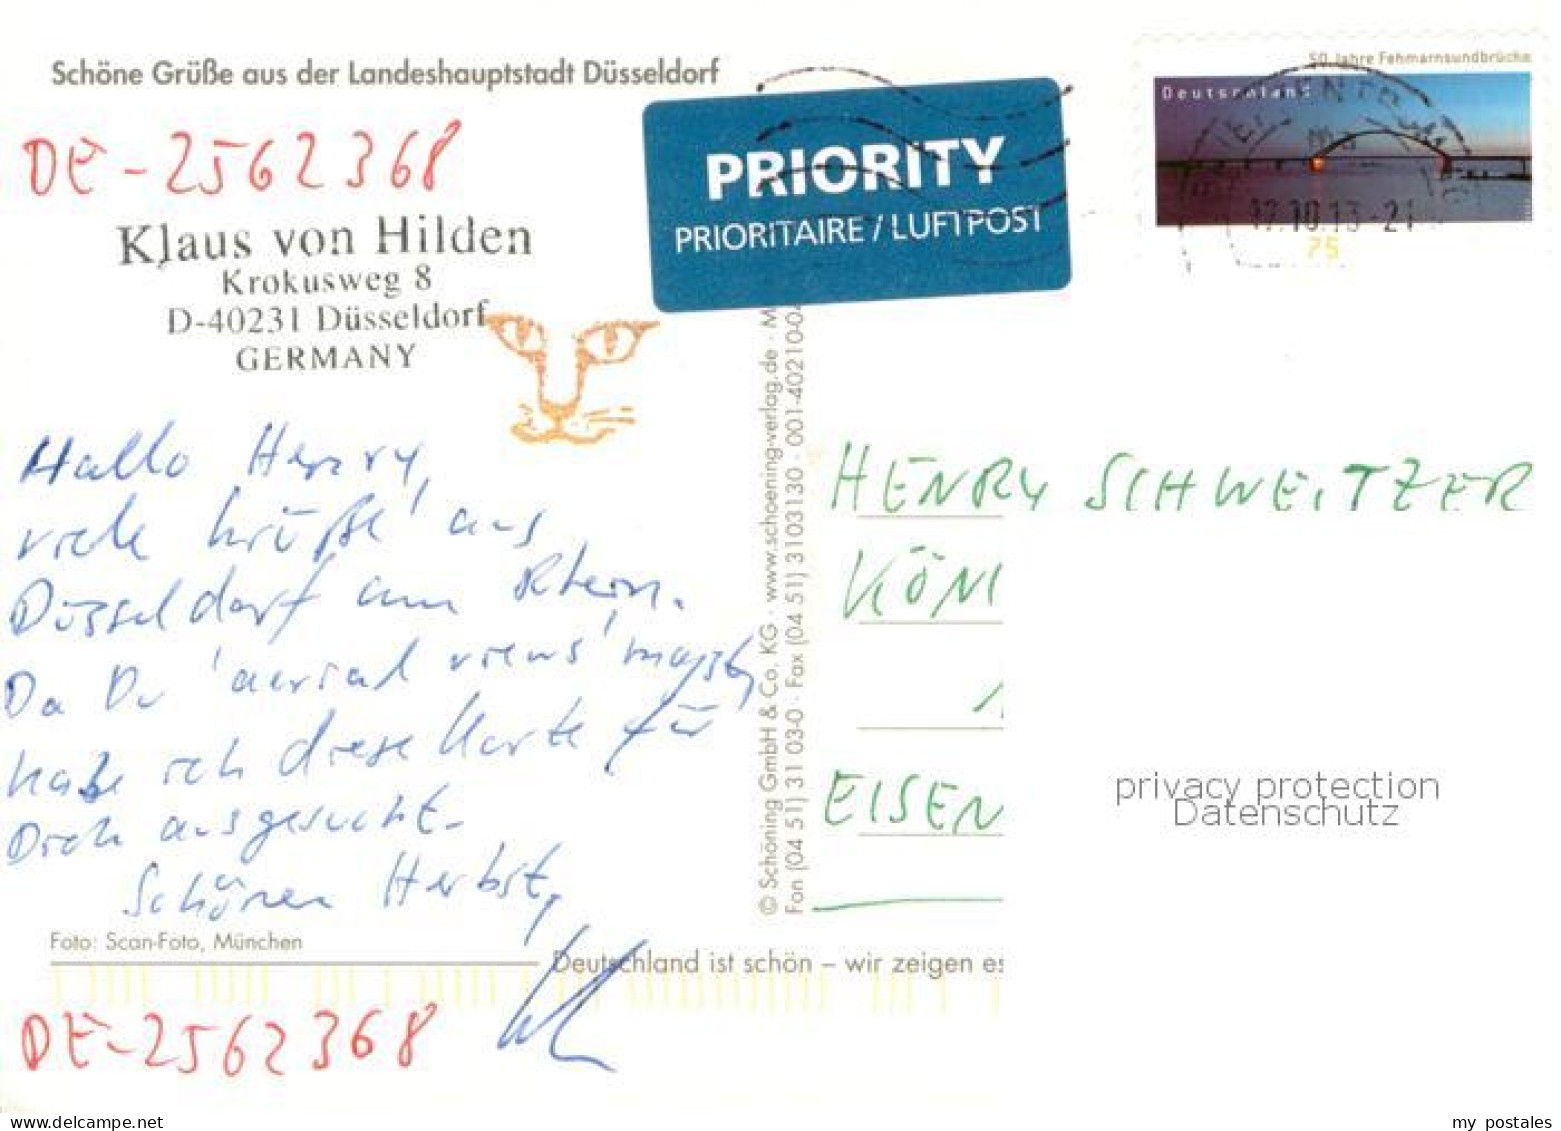 Schöne Grüße aus der Landeshauptstadt Düsseldorf
DE-2562368
Klaus von Hilden
Krokusweg 8
D-40231 Düsseldorf
GERMANY
PRIORITY
PRIORITAIRE / LUFTPOST
50 Jahre Fehmarnsundbrücke
Deutschland
17.10.13-21
75
Hallo Henry,
viele Grüße aus
Düsseldorf am Rhein.
Da Du 'aerial views' magst,
habe ich diese Karte für
Dich ausgesucht.
Schönen Herbst,
Foto: Scan-Foto, München
Deutschland ist schön – wir zeigen es
DE-2562368
© Schöning GmbH & Co. KG · www.schoening-verlag.de · M
Fon (04 51) 31 03-0 · Fax (04 51) 3103130 · 001-40210-04
HENRY SCHWEITZER
KÖNI
EISEN
privacy protection
Datenschutz
my postales